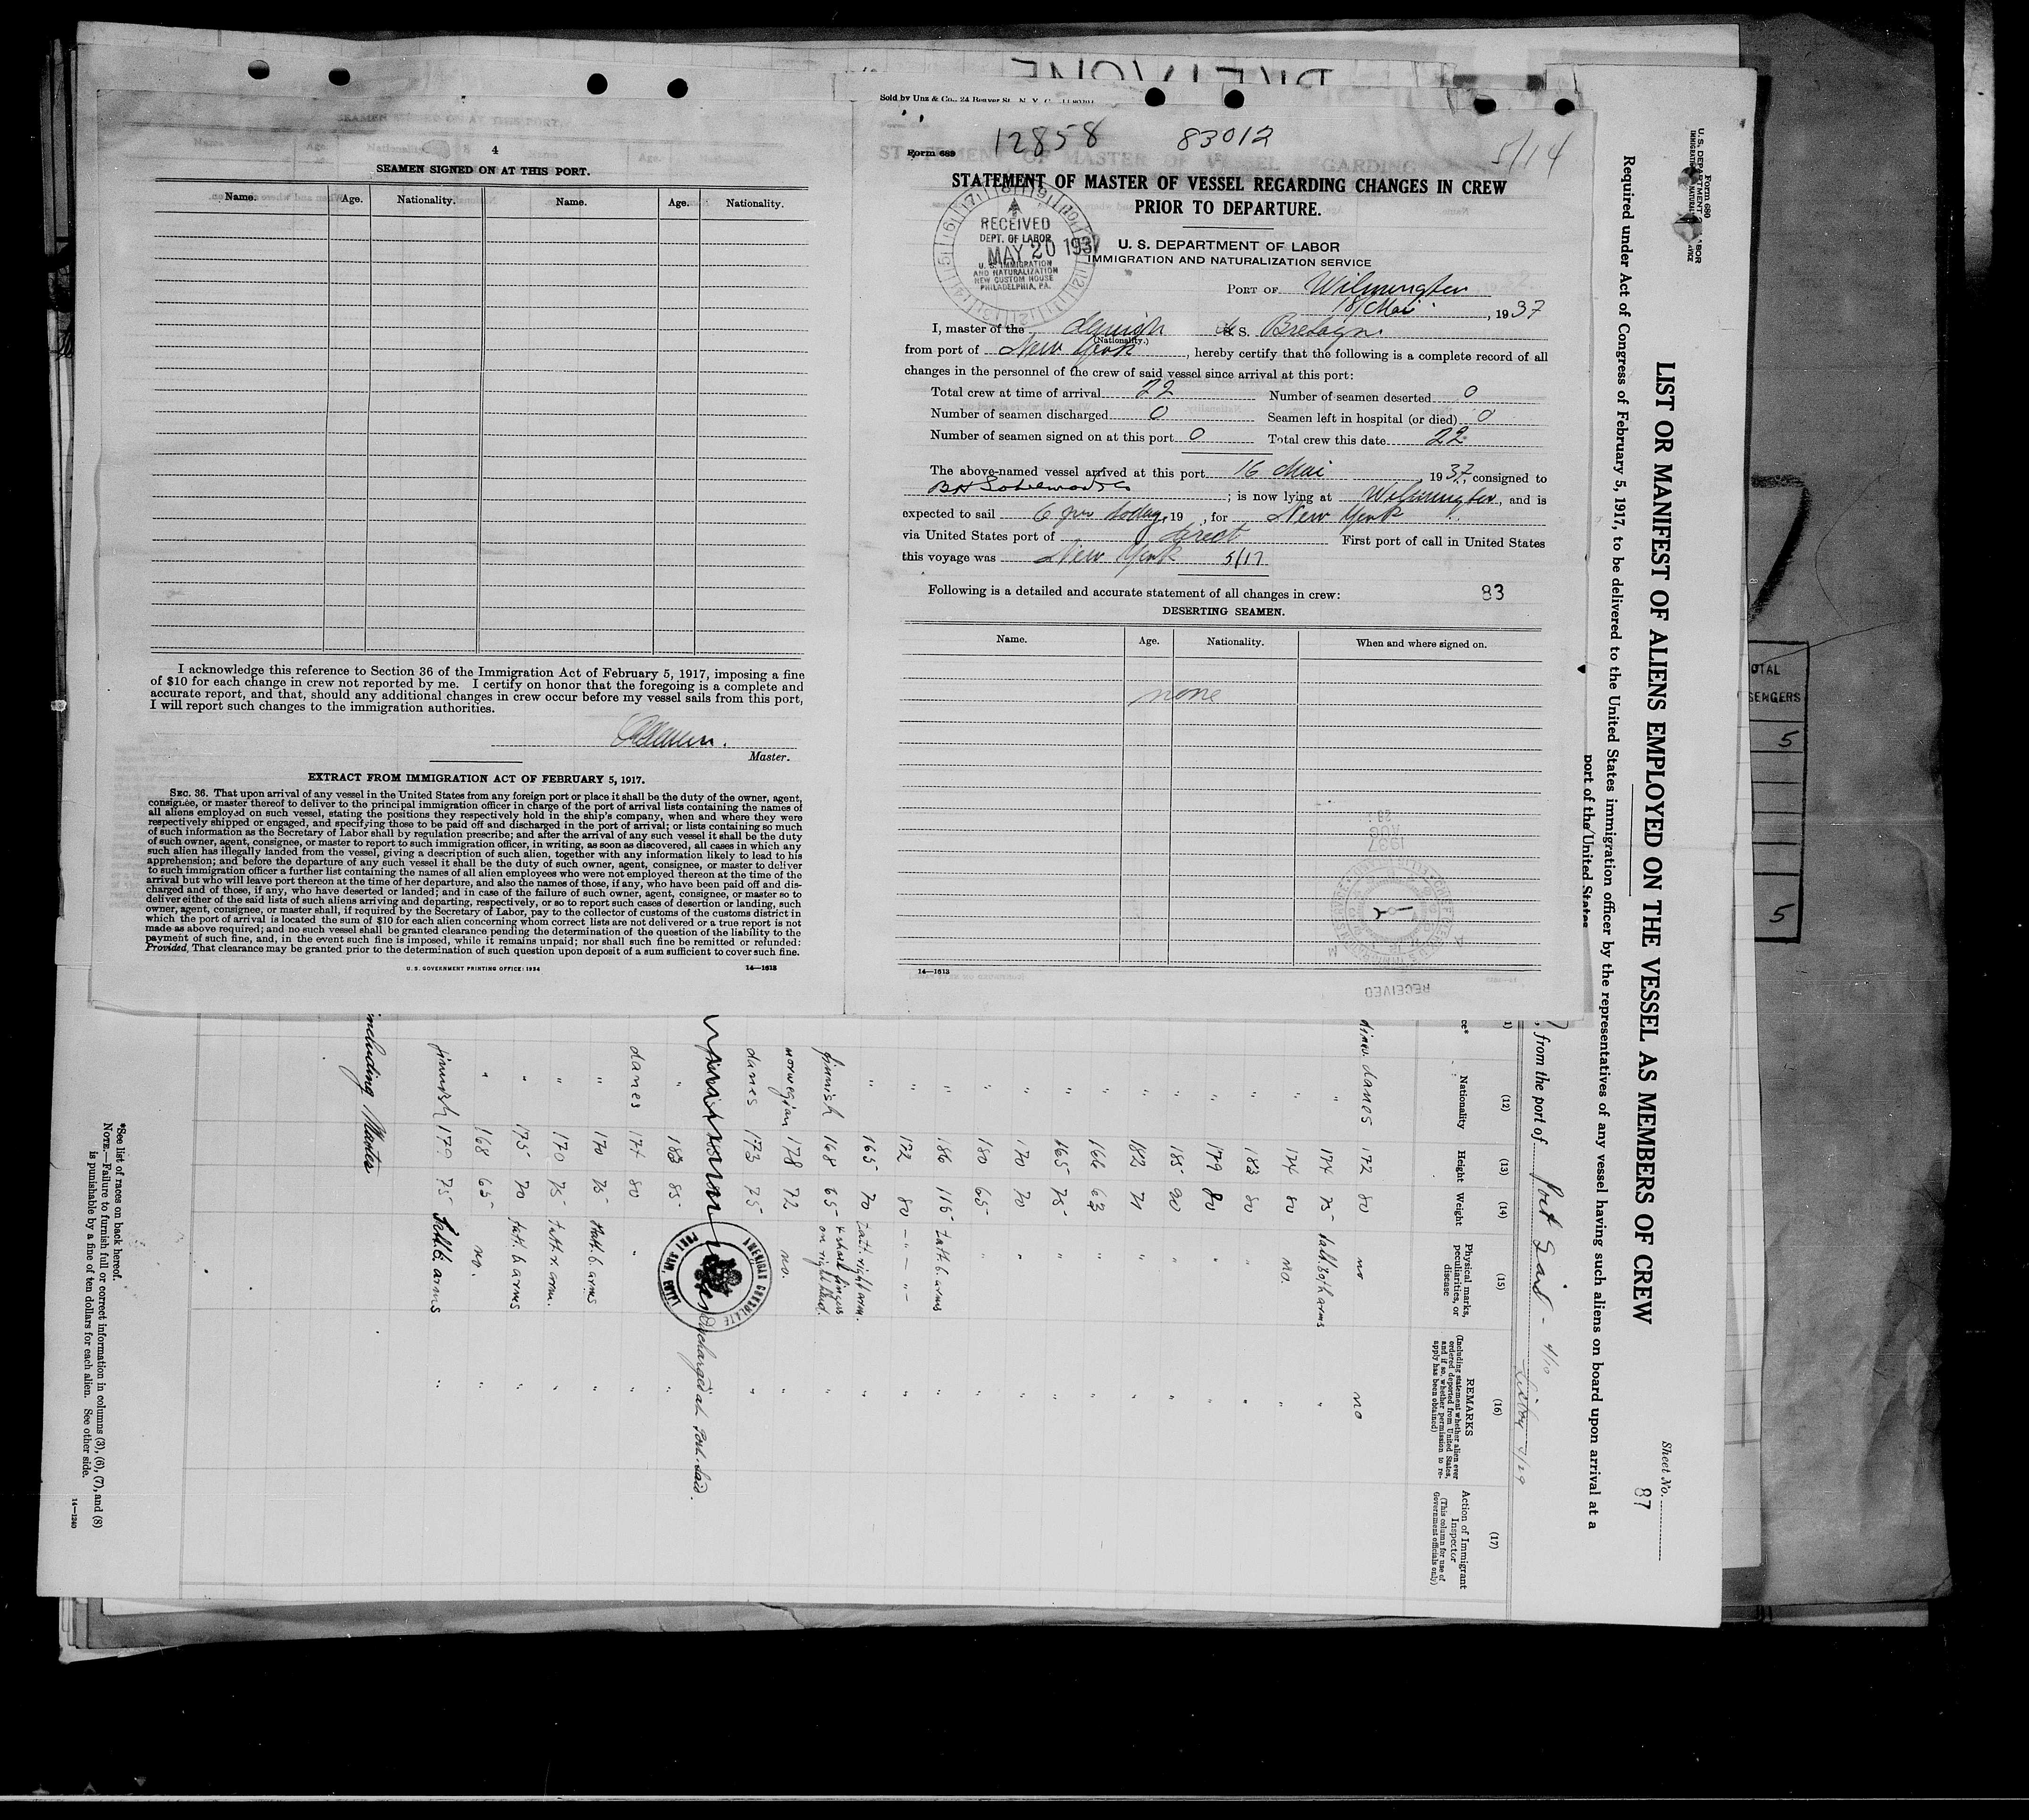 4
SEAMEN SIGNED ON AT THIS PORT.
Name. Age. Nationality. Name. Age. Nationality.
I acknowledge this reference to Section 36 of the Immigration Act of February 5, 1917, imposing a fine
of $10 for each change in crew not reported by me. I certify on honor that the foregoing is a complete and
accurate report, and that, should any additional changes in crew occur before my vessel sails from this port,
I will report such changes to the immigration authorities.
Master.
EXTRACT FROM IMMIGRATION ACT OF FEBRUARY 5, 1917.
SEC. 36. That upon arrival of any vessel in the United States from any foreign port or place it shall be the duty of the owner, agent,
consignee, or master thereof to deliver to the principal immigration officer in charge of the port of arrival lists containing the names of
all aliens employed on such vessel, stating the positions they respectively hold in the ship's company, when and where they were
respectively shipped or engaged, and specifying those to be paid off and discharged in the port of arrival; or lists containing so much
of such information as the Secretary of Labor shall by regulation prescribe; and after the arrival of any such vessel it shall be the duty
of such owner, agent, consignee, or master to report to such immigration officer, in writing, as soon as discovered, all cases in which any
such alien has illegally landed from the vessel, giving a description of such alien, together with any information likely to lead to his
apprehension; and before the departure of any such vessel it shall be the duty of such owner, agent, consignee, or master to deliver
to such immigration officer a further list containing the names of all alien employees who were not employed thereon at the time of the
arrival but who will leave port thereon at the time of her departure, and also the names of those, if any, who have been paid off and dis-
charged and of those, if any, who have deserted or landed; and in case of the failure of such owner, agent, consignee, or master so to
deliver either of the said lists of such aliens arriving and departing, respectively, or so to report such cases of desertion or landing, such
owner, agent, consignee, or master shall, if required by the Secretary of Labor, pay to the collector of customs of the customs district in
which the port of arrival is located the sum of $10 for each alien concerning whom correct lists are not delivered or a true report is not
made as above required; and no such vessel shall be granted clearance pending the determination of the question of the liability to the
payment of such fine, and, in the event such fine is imposed, while it remains unpaid; nor shall such fine be remitted or refunded:
Provided, That clearance may be granted prior to the determination of such question upon deposit of a sum sufficient to cover such fine.
U. S. GOVERNMENT PRINTING OFFICE: 1934 14—1613
Sold by Unz & Co., 24 Beaver St., N. Y. C.
12858 83012 5/14
Form 689
STATEMENT OF MASTER OF VESSEL REGARDING CHANGES IN CREW
PRIOR TO DEPARTURE.
RECEIVED
DEPT. OF LABOR
MAY 20 1937
U. S. IMMIGRATION
AND NATURALIZATION
NEW CUSTOM HOUSE
PHILADELPHIA, PA.
U. S. DEPARTMENT OF LABOR
IMMIGRATION AND NATURALIZATION SERVICE
PORT OF Wilmington
18 Mai, 1937
I, master of the danish S. S. Bretagne
(Nationality.)
from port of New York, hereby certify that the following is a complete record of all
changes in the personnel of the crew of said vessel since arrival at this port:
Total crew at time of arrival 22 Number of seamen deserted 0
Number of seamen discharged 0 Seamen left in hospital (or died) 0
Number of seamen signed on at this port 0 Total crew this date 22
The above-named vessel arrived at this port 16 Mai 1937, consigned to
; is now lying at Wilmington, and is
expected to sail 6 pm today, 19 , for New York
via United States port of direct First port of call in United States
this voyage was New York 5/17
Following is a detailed and accurate statement of all changes in crew: 83
DESERTING SEAMEN.
Name. Age. Nationality. When and where signed on.
none
14—1613
Form 680
U. S. DEPARTMENT OF LABOR
Sheet No.
87
LIST OR MANIFEST OF ALIENS EMPLOYED ON THE VESSEL AS MEMBERS OF CREW
Required under Act of Congress of February 5, 1917, to be delivered to the United States immigration officer by the representatives of any vessel having such aliens on board upon arrival at a
port of the United States
, from the port of Port Said - 4/10
4/29
(12) (13) (14) (15) (16) (17)
Nationality Height Weight Physical marks, peculiarities, or disease REMARKS (Including statement whether alien ever ordered deported from United States, and if so, whether permission to re-apply has been obtained) Action of Immigrant Inspector (This column for use of Government officials only)
danes 172 80 no no
" 174 75 tatt. both arms "
" 174 80 no. "
" 183 80 " "
" 179 80 " "
" 185 90 " "
" 182 71 " "
" 166 63 " "
" 165 75 " "
" 170 70 " "
" 180 65 " "
" 186 116 tatt. b. arms "
" 172 80 - " - " - "
" 165 70 tatt. right arm. "
finnish 168 65 on right hand. "
norwegian 178 72 no. "
danes 173 75 "
discharged at Port-Said.
AMERICAN CONSULATE
PORT SAID, EGYPT
" 183 85 "
danes 174 80 " "
" 170 75 tatt. b. arms "
" 170 75 tatt. r. arm. "
" 175 70 tatt. b. arms "
" 168 65 no. "
finnish 170 75 tatt. b. arms "
including Master
*See list of races on back hereof.
NOTE.—Failure to furnish full or correct information in columns (3), (6), (7), and (8)
is punishable by a fine of ten dollars for each alien. See other side.
14—1240
OTAL
SENGERS
5
5